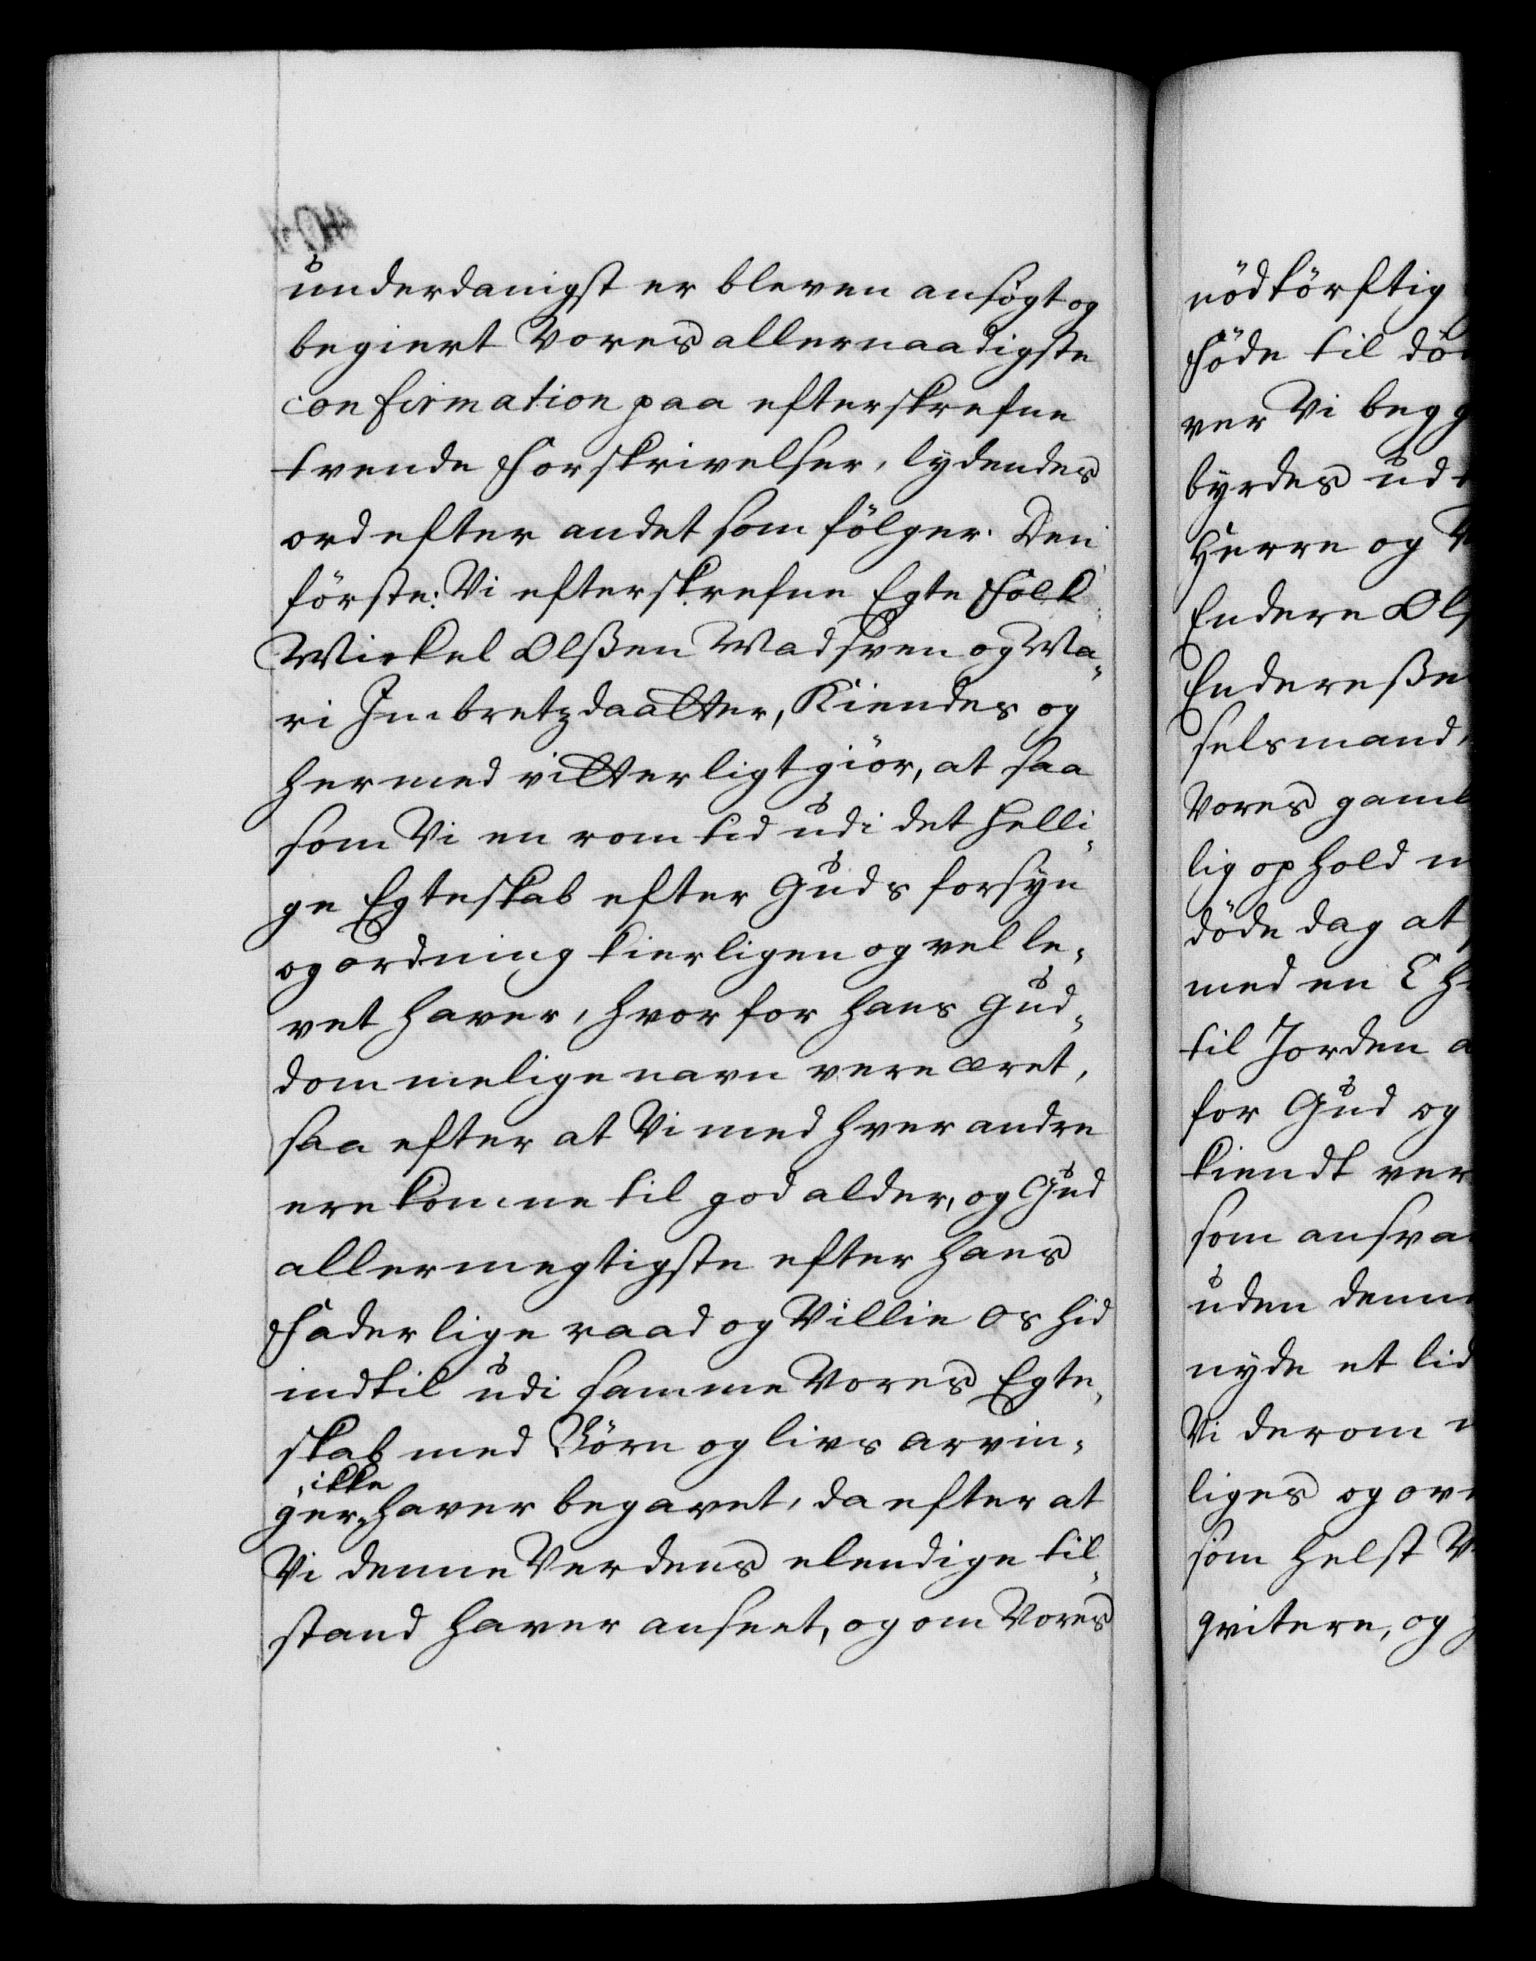 underdanigst er bleven ansøgt og
begiert Vores allernaadigste
confirmation paa efterskrefne
tvende Forskrivelser, lydendes
ord efter andet som fölger. Den
förste: Vi efterskrefne Egte Folk
Mickel Olßen Wadsven og Ma-
ri Imbretzdaatter, Kiendes og
hermed vitterligt giör, at saa
som Vi en rom tid udi det helli-
ge Egteskab efter Guds forsyn
og ordning kierligen og vel le-
vet haver, hvor for hans Gud-
dommelige navn være æret,
saa efter at Vi med hver andre
ere komne til god alder, og Gud
allermegtigste efter hans
Faderlige raad og Villie Os hid
indtil udi samme Vores Egte-
skab med Börn og livs arvin-
ikke
ger haver begavet, da efter at
Vi denne Verdens elendige til-
stand haver anseet, og om Vores
nödtörftig
Föde til dö
ver Vi begg
byrdes ud
Herre og V
Endere Ols
Endereßen
selsmand
Vores gaml
lig ophold
döde dag at
med en
til Jorden
for Gud og
kiendt ver
som ansva
uden denn
nyde et lid
Vi derom
liges og ov
som helst V
qvitere, og